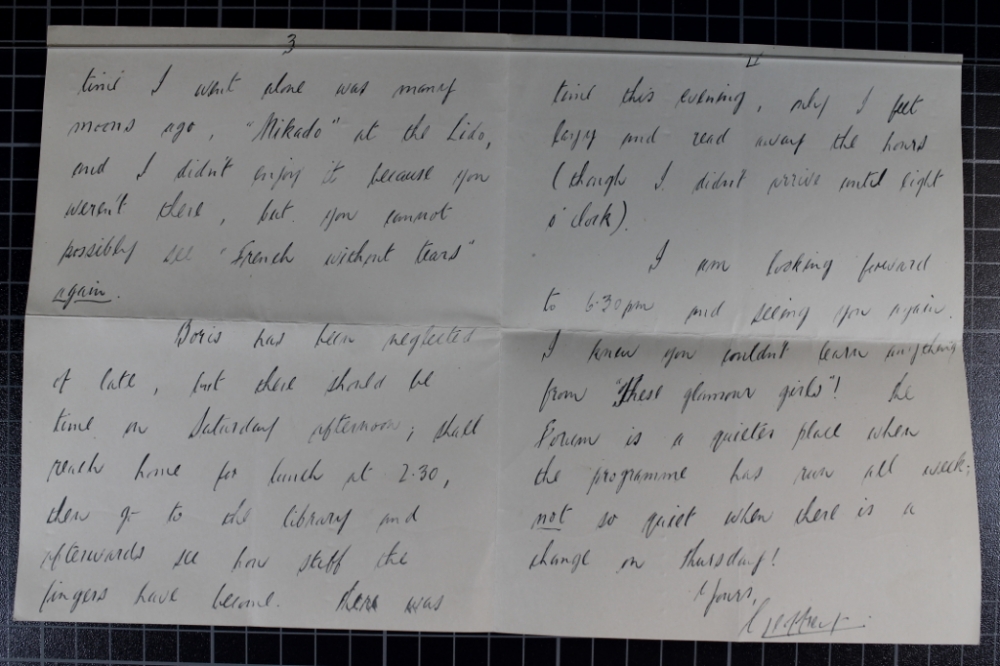 3
time I went alone was many
moons ago, "Mikado" at the Lido,
and I didn't enjoy it because you
weren't there, but you cannot
possibly see "French without tears"
again.
Boris has been neglected
of late, but there should be
time on Saturday afternoon; shall
reach home for lunch at 2.30,
then go to the library and
afterwards see how stiff the
fingers have become. There was
time this evening, only I felt
lazy and read away the hours
(though I didn't arrive until eight
o'clock).
I am looking forward
to 6.30pm and seeing you again.
I knew you couldn't learn anything
from "These glamour girls"! The
Forum is a quieter place when
the programme has run all week;
not so quiet when there is a
change on Thursday!
Yours,
Geoffrey.